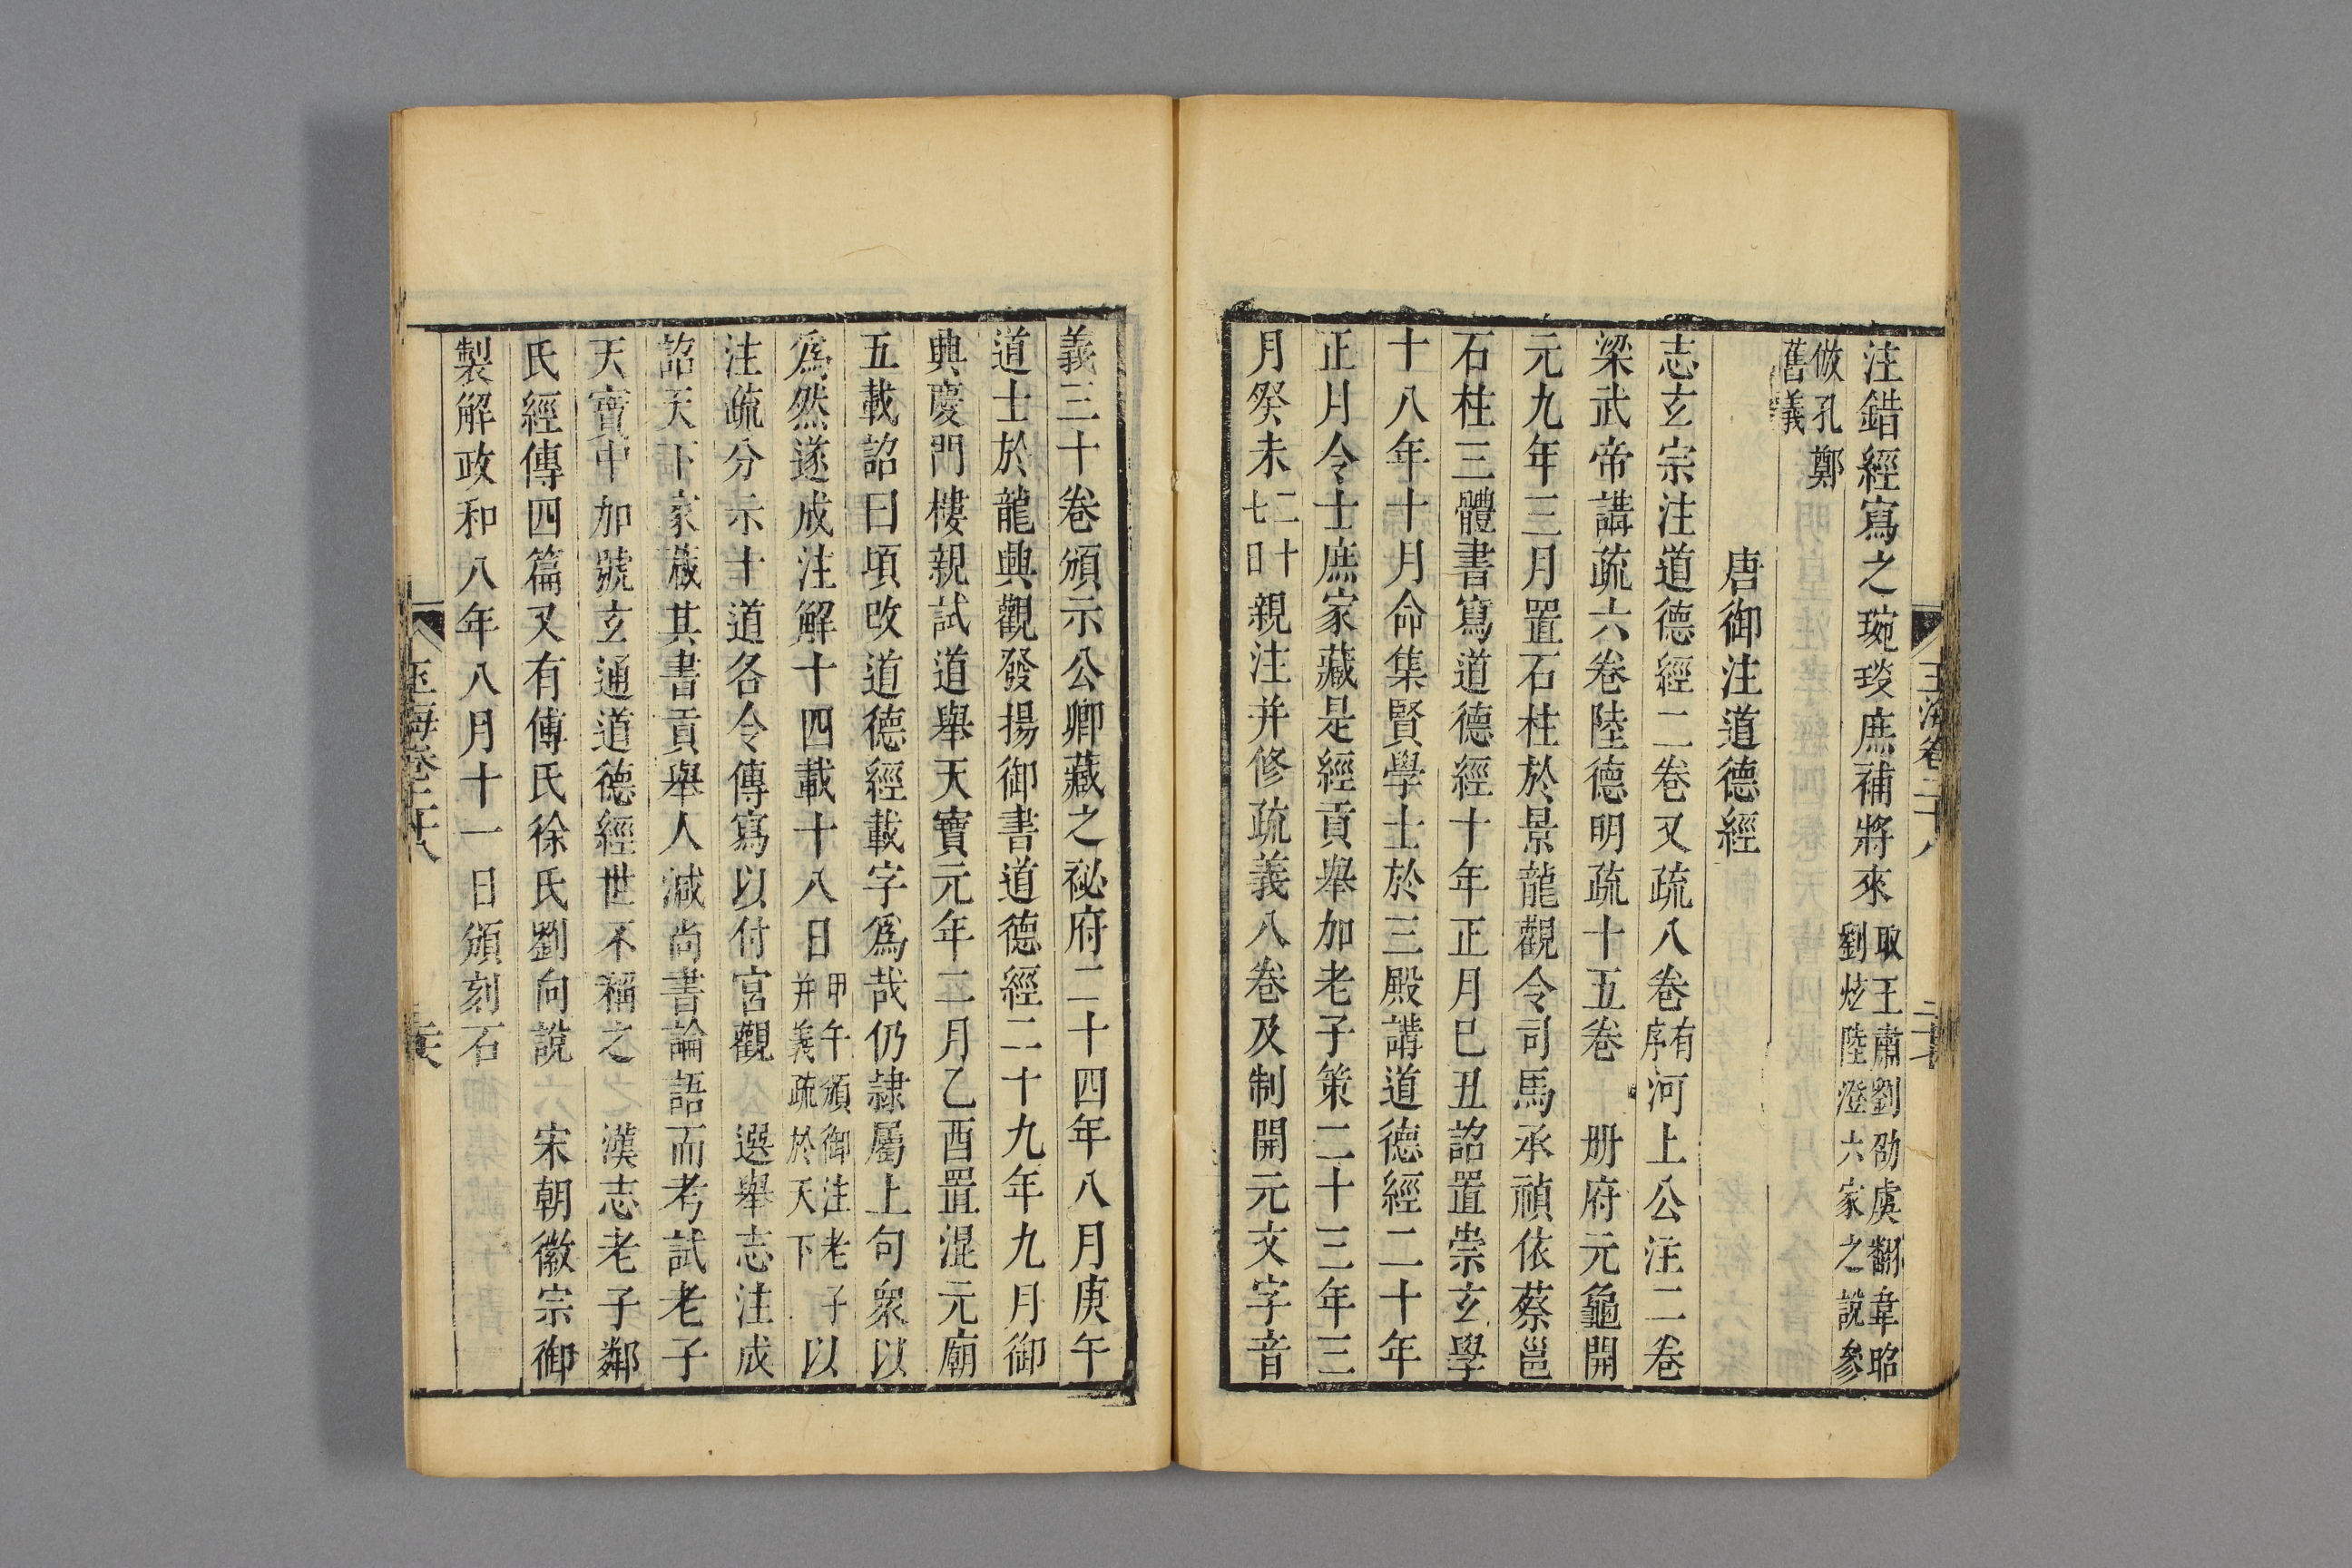 玉海卷二十八
二十七
注錯經寫之琬琰庶補將來取王肅劉劭虞翻韋昭劉炫陸澄六家之說參
倣孔鄭舊義
唐御注道德經
志玄宗注道德經二卷又疏八卷有序河上公注二卷
梁武帝講疏六卷陸德明疏十五卷 册府元龜開
元九年三月置石柱於景龍觀令司馬承禎依蔡邕
石柱三體書寫道德經十年正月巳丑詔置崇玄學
十八年十月命集賢學士於三殿講道德經二十年
正月令士庶家藏是經貢舉加老子策二十三年三
月癸未二十七日親注并修疏義八卷及制開元文字音
義三十卷頒示公卿藏之祕府二十四年八月庚午
道士於龍興觀發揚御書道德經二十九年九月御
興慶門樓親試道舉天寶元年二月乙酉置混元廟
五載詔曰頃改道德經載字爲哉仍隷屬上句衆以
爲然遂成注解十四載十八日甲午頒御注老子并義疏於天下以
注疏分示十道各令傳寫以付宮觀 選舉志注成
詔天下家藏其書貢舉人減尚書論語而考試老子
天寶中加號玄通道德經世不稱之 漢志老子鄰
氏經傳四篇又有傅氏徐氏劉向說 宋朝徽宗御
製解政和八年八月十一日頒刻石
玉海卷二十八